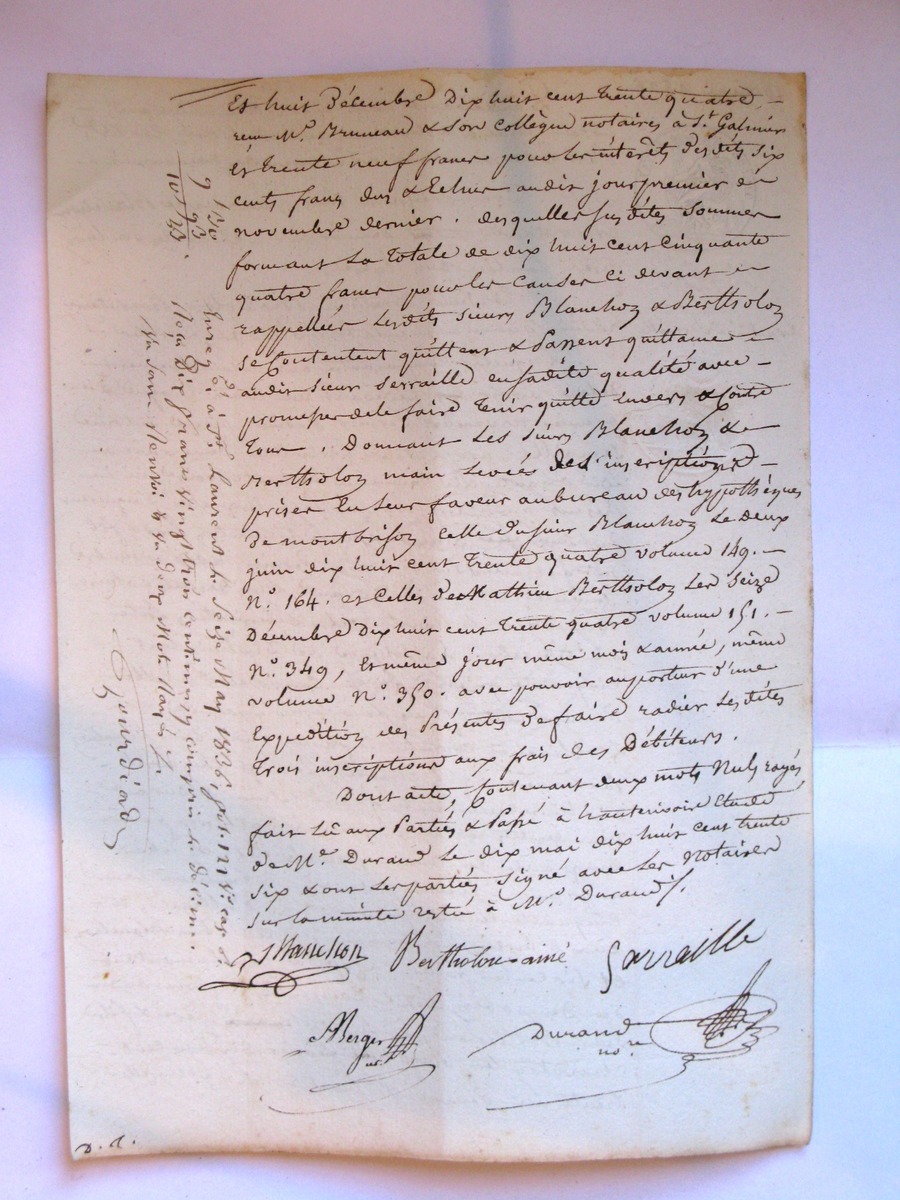 Et huit Décembre Dix huit cent trente quatre
reçu Me. Bruneau & son collègue notaires à St. Galmier
Et trente neuf francs pour les intérêts desdits six
cents francs dus & Echus audit jour premier de
novembre dernier. desquelles susdites sommes
formant la totale de dix huit cent cinquante
quatre francs pour les causes ci devant
rappellées lesdits sieurs Blanchon & Bertholon
se Contentent quittent & Passent quittance
audit sieur Serraille en sadite qualité avec
promesse de le faire tenir quitte envers & Contre
tous. Donnant les sieurs Blanchon &
Bertholon main levée des inscriptions
prises En leur faveur au bureau des hypothèques
de montbrison celle du sieur Blanchon le deux
juin dix huit cent trente quatre volume 149.
No. 164. et celles de Mathieu Bertholon les seize
Décembre Dix huit cent trente quatre volume 151.
No. 349, Et même jour même mois & année, même
volume No. 350. avec pouvoir au porteur d'une
Expedition des Présentes de faire radier lesdites
trois inscriptions aux frais des Débiteurs.
Dont acte, Contenant deux mots Nuls rayés
fait lû aux Parties & Passé à hauterivoire Etude
de Me. Durand le dix mai dix huit cent trente
six & ont les parties signé avec les Notaires
sur la minute restée à Me. Durand.
Blanchon Bertholon ainé Sarraille
Berger
Durand
nore
Enreg. à St. Laurent le Seize May 1836,
Reçu Dix francs vingt trois centimes compris le décime.
D. A.